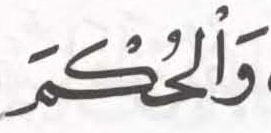 وَاْلحُكْمَ